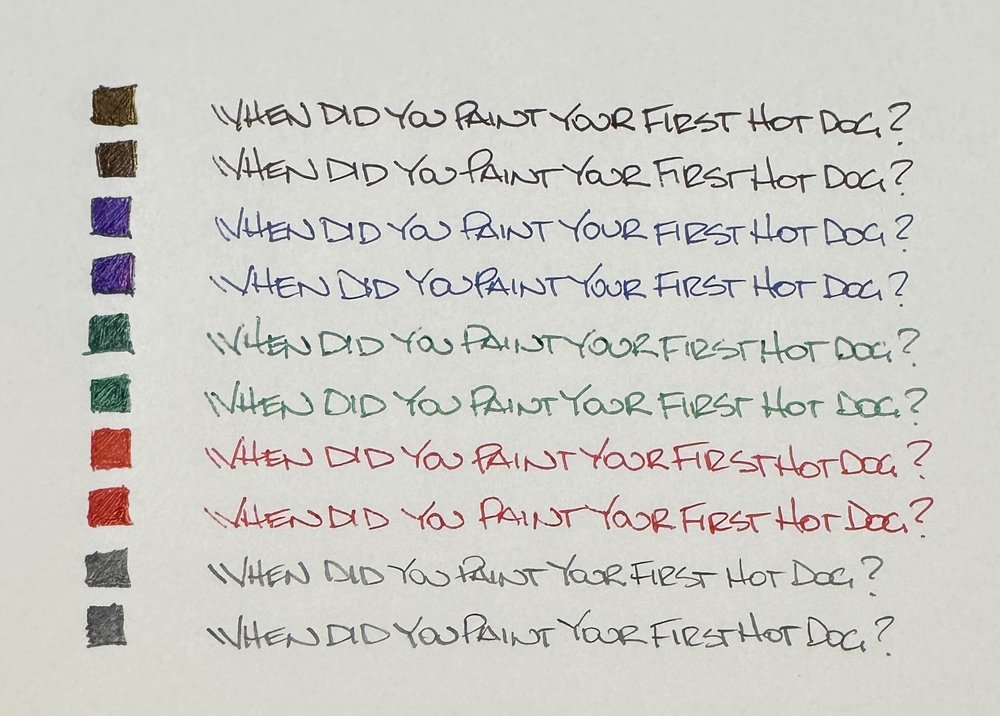 WHEN DID YOU PAINT YOUR FIRST HOT DOG?
WHEN DID YOU PAINT YOUR FIRST HOT DOG?
WHEN DID YOU PAINT YOUR FIRST HOT DOG?
WHEN DID YOU PAINT YOUR FIRST HOT DOG?
WHEN DID YOU PAINT YOUR FIRST HOT DOG?
WHEN DID YOU PAINT YOUR FIRST HOT DOG?
WHEN DID YOU PAINT YOUR FIRST HOT DOG?
WHEN DID YOU PAINT YOUR FIRST HOT DOG?
WHEN DID YOU PAINT YOUR FIRST HOT DOG?
WHEN DID YOU PAINT YOUR FIRST HOT DOG?